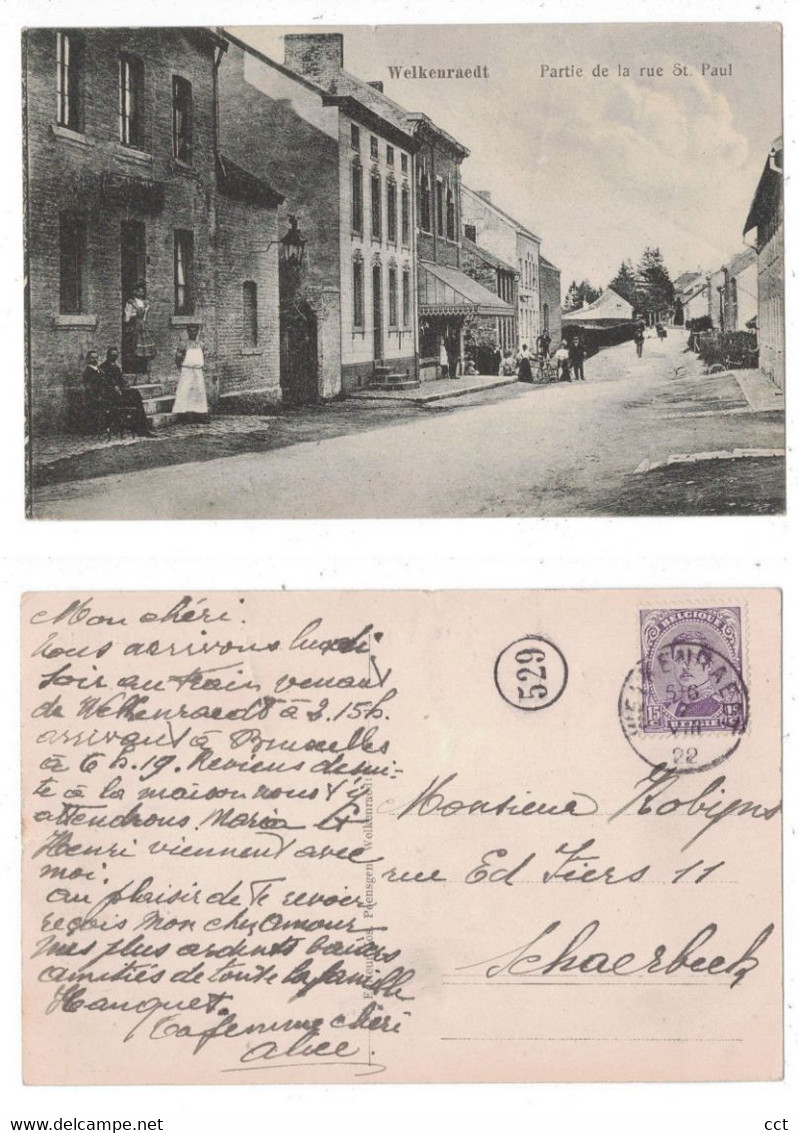 Welkenraedt Partie de la rue St. Paul
Mon chéri.
nous arrivons lundi
soir au train venant
de Welkenraedt à 3.15h.
arrivant à Bruxelles
à 6 h. 19. Reviens de sui-
te à la maison nous t'y
attendrons. Maria et
Henri viennent avec
moi.
au plaisir de te revoir
reçois mon cher amour
mes plus ardents baisers
amitiés de toute la famille
Hanquet.
Ta femme chéri
Alice.
Editeur: Jos. Peensgen, Welkenraedt
529
BELGIQUE
15 15
BELGIE
WELKENRAEDT
5-6
VIII
22
Monsieur Robyns
rue Ed Fiers 11
Schaerbeek
www.delcampe.net
cct